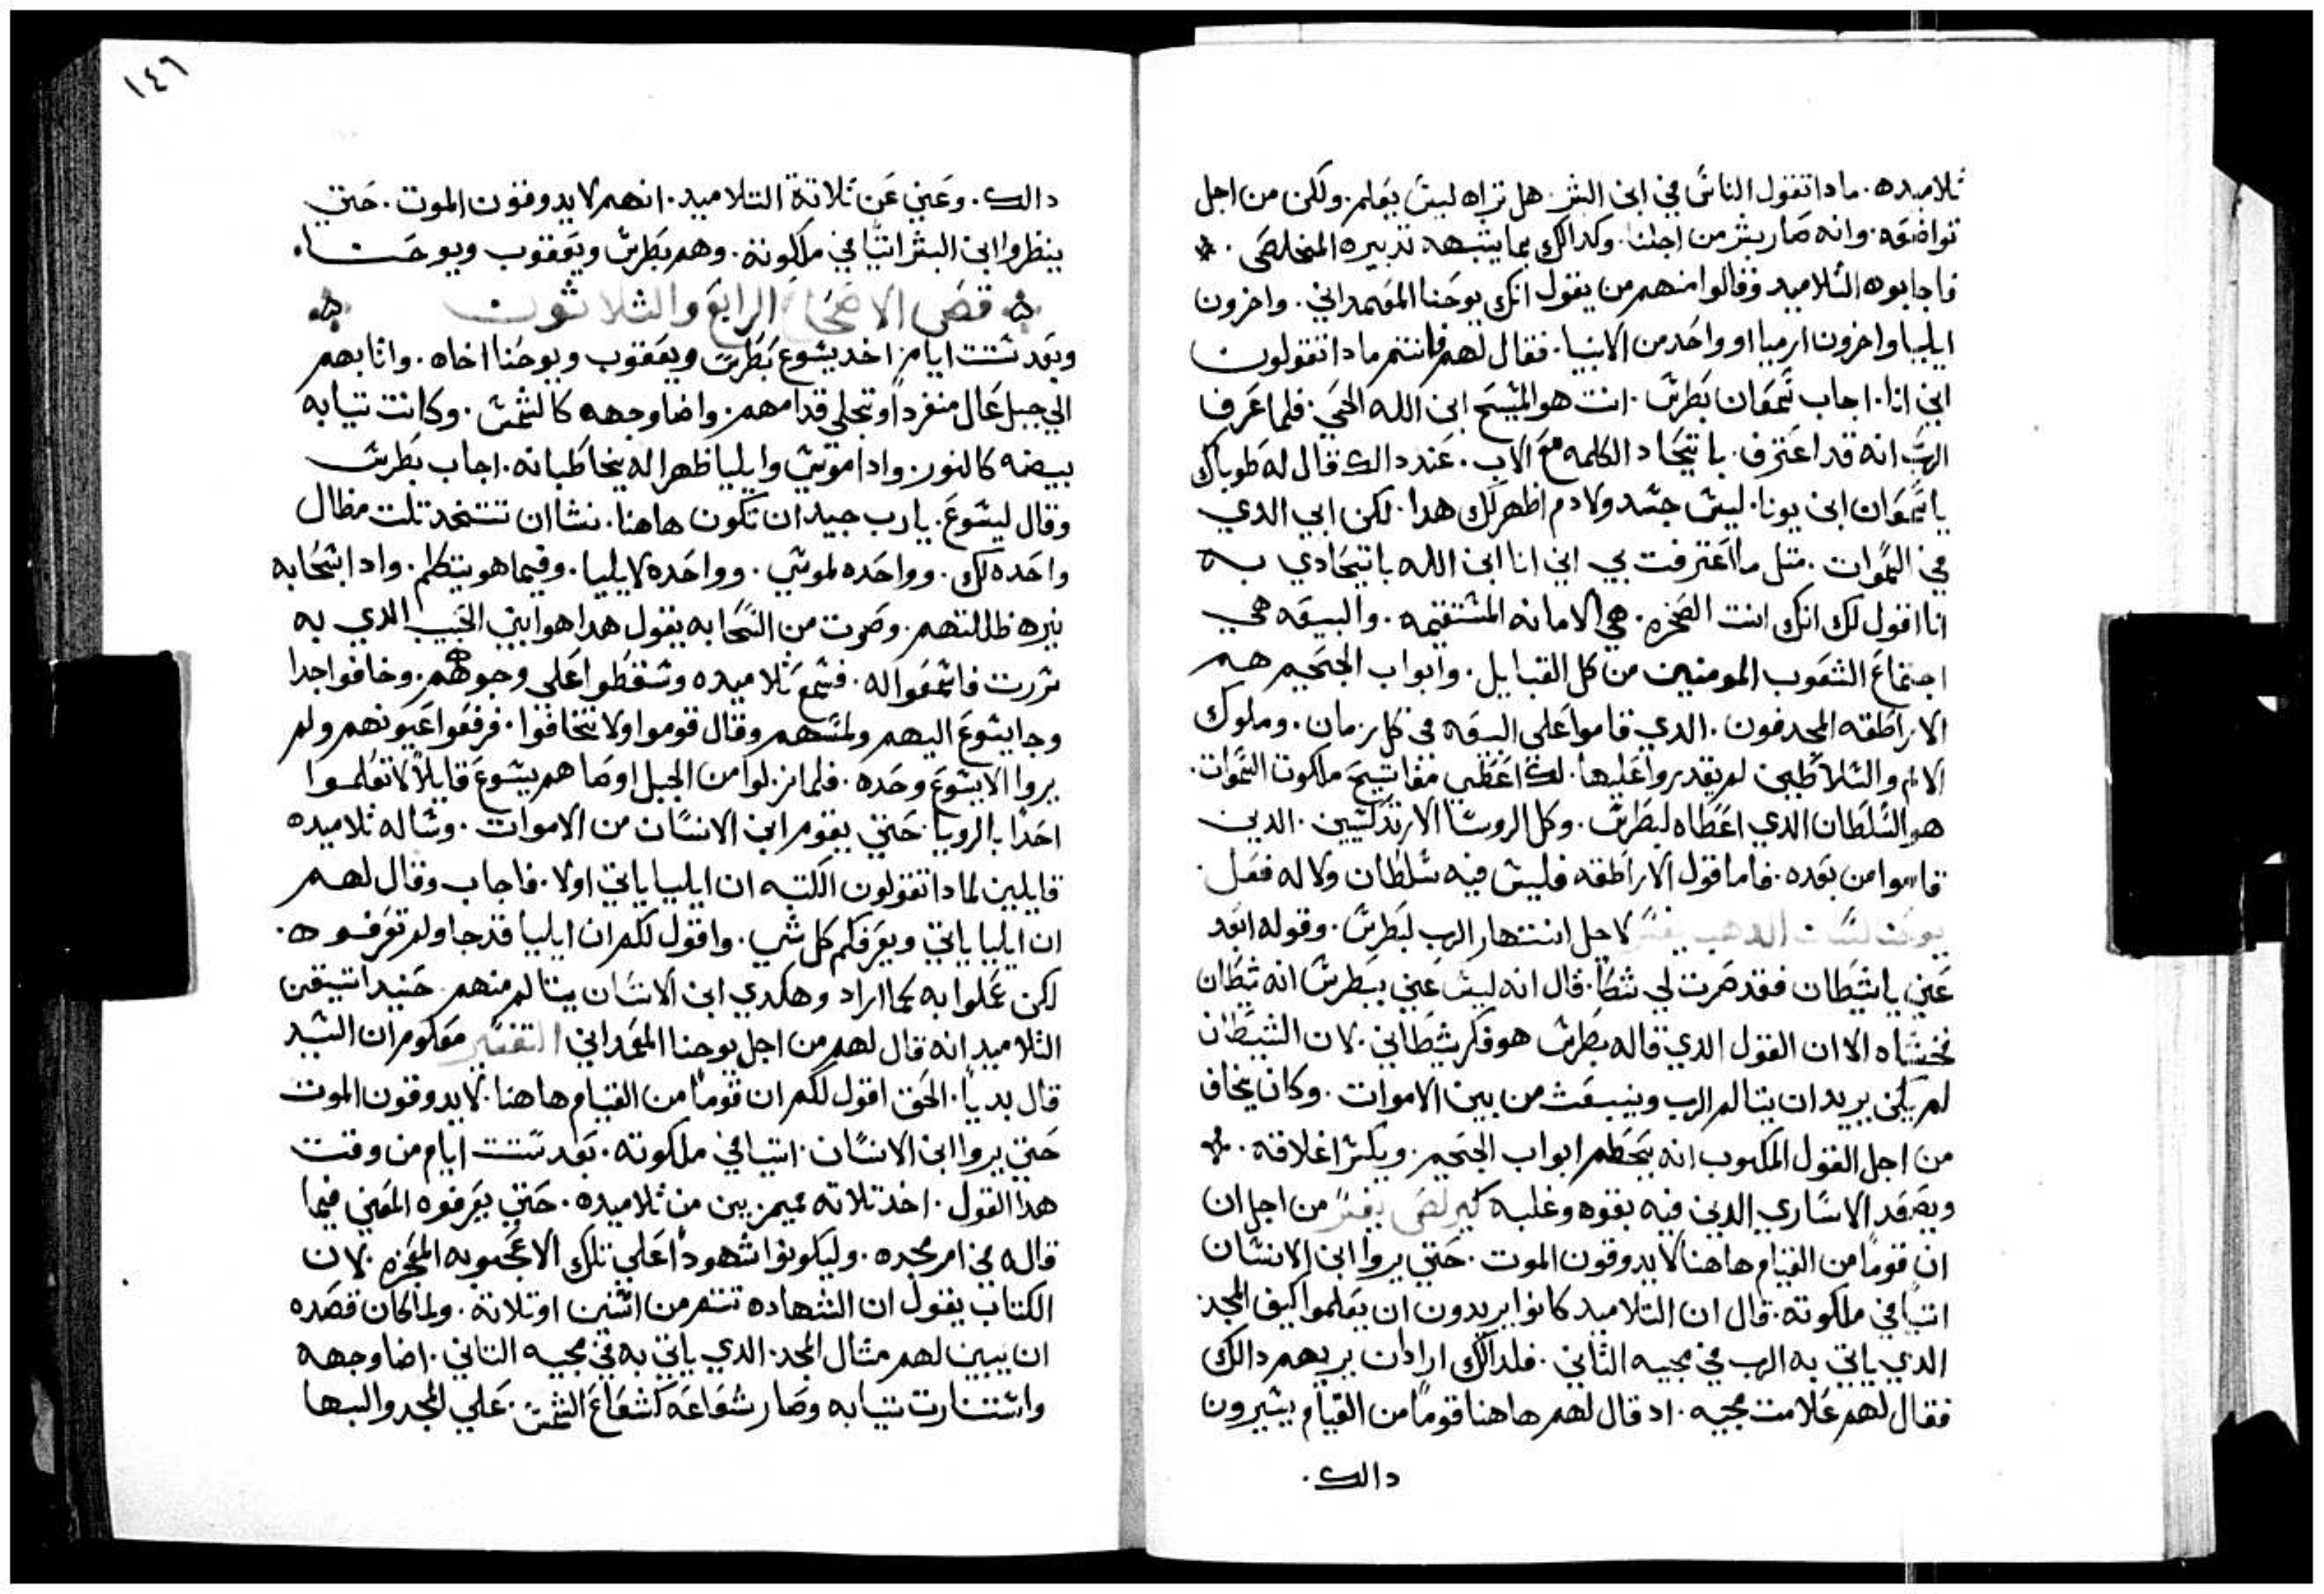 تلاميده. مادا تقول الناس في ابن البشر. هل تراه ليس يعلم. ولكن من اجل
تواضعه. وانه صار بشر من اجلنا. وكدالك بما يشبهه تدبيره المخلصي.
فاجابوه التلاميد وقالوا منهم من يقول انك يوحنا المعمداني. واخرون
ايليا واخرون ارميا او واحد من الانبيا. فقال لهم فانتم مادا تقولون
اني انا. اجاب سمعان بطرس. انت هو المسيح ابن الله الحي. فلما عرف
الرب انه قد اعترف. باتحاد الكلمه مع الاب. عند دالك قال له طوباك
ياسمعان ابن يونا. ليس جسد ولا دم اظهر لك هدا. لكن ابي الدي
في السموات. متل ما اعترفت بي اني انا ابن الله باتحادي به
انا اقول لك انك انت الصخره. هي الامانه المستقيمه. والبيعه هي
اجتماع الشعوب المومنين من كل القبايل. وابواب الجحيم هم
الاراطقه المجدفون. الدي قاموا على البيعه في كل زمان. وملوك
الامم والسلاطين لم يقدروا عليها. لك اعطي مفاتيح ملكوت السموات.
هو السلطان الدي اعطاه لبطرس. وكل الروسا الارتدكسيين. الدين
قاموا من بعده. فاما قول الاراطقه فليس فيه سلطان ولا له فعل.
يوحنا لسان الدهب يفسر لاجل انتهار الرب لبطرس. وقوله ابعد
عني ياشيطان فقد صرت لي شطا. قال انه ليس عني ببطرس انه شيطان
نخشاه الا ان القول الدي قاله بطرس هو فكر شيطاني. لان الشيطان
لم يكن يريد ان يتالم الرب وينبعث من بين الاموات. وكان يخاف
من اجل القول المكتوب انه يحطم ابواب الجحيم. ويكسر اغلاقه.
ويصعد الاساري الدين فيه بقوه وغلبه كيرلص يفسر من اجل ان
ان قوما من القيام هاهنا لا يدوقون الموت. حتي يروا ابن الانسان
اتيا في ملكوته. قال ان التلاميد كانوا يريدون ان يعلموا كيف المجد
الدي ياتي به الرب في مجيه الثاني. فلدالك اراد ان يريهم دالك
فقال لهم علامت مجيه. اد قال لهم هاهنا قوما من القيام يشيرون
دالك.
١٤٦
دالك. وعني عن تلاتة التلاميد. انهم لا يدوقون الموت. حتي
ينظروا ابن البشر اتيا في ملكوته. وهم بطرس ويعقوب ويوحنا.
قص الاصحاح الرابع والثلاثون
وبعد ستت ايام اخد يسوع بطرس ويعقوب ويوحنا اخاه. واتا بهم
الي جبل عال منفردا وتجلى قدامهم. واضا وجهه كالشمس. وكانت تيابه
بيضه كالنور. وادا موسى وايليا ظهرا له يخاطبانه. اجاب بطرس
وقال ليسوع. يارب جيد ان تكون هاهنا. نشا ان تتخد تلت مظال
واحده لك. وواحده لموسي. وواحده لايليا. وفيما هو يتكلم. وادا سحابه
نيره ظللتهم. وصوت من السحابه يقول هدا هو ابني الحبيب الدي به
سررت فاسمعوا له. فسمع تلاميده وسقطوا على وجوههم. وخافوا جدا
وجا يسوع اليهم ولمسهم وقال قوموا ولا تخافوا. فرفعوا عيونهم ولم
يروا الا يسوع وحده. فلما نزلوا من الجبل اوصاهم يسوع قايلا لا تعلموا
احدا بالرويا. حتي يقوم ابن الانسان من الاموات. وساله تلاميده
قايلين لمادا تقولون الكتبه ان ايليا ياتي اولا. فاجاب وقال لهم
ان ايليا ياتي ويعرفكم كل شي. واقول لكم ان ايليا قد جا ولم تعرفوه.
لكن عملوا به كما اراد وهكدي ابن الانسان يتالم منهم حنيد استيقن
التلاميد انه قال لهم من اجل يوحنا المعمداني التفسير معلوم ان السيد
قال بديا. الحق اقول لكم ان قوما من القيام هاهنا. لا يدوقون الموت
حتي يروا ابن الانسان. اتيا في ملكوته. بعد ستت ايام من وقت
هدا القول. اخد تلاته مميزين من تلاميده. حتي يعرفوه المعني فيما
قاله في امر مجده. وليكونوا شهودا على تلك الاعجوبه المعجزه. لان
الكتاب يقول ان الشهاده تتم من اتنين او تلاتة. ولما كان قصده
ان يبين لهم متال المجد. الدي ياتي به في مجيه التاني. اضا وجهه
واستنارت تيابه وصار شعاعه كشعاع الشمس. على المجد والبها